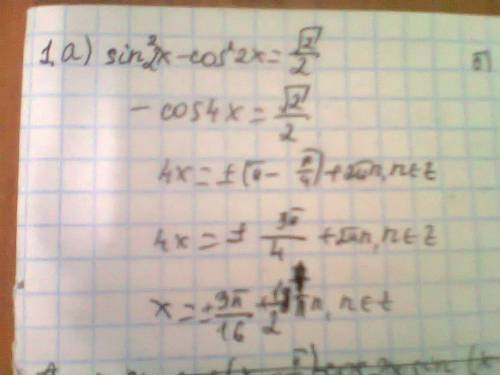 1. а) sin²2x - cos²2x = √2/2
- cos4x = √2/2
4x = ±(π - π/4) + 2πn, n∈Z
4x = ± 3π/4 + 2πn, n∈Z
x = ± 3π/16 + πn, n∈Z